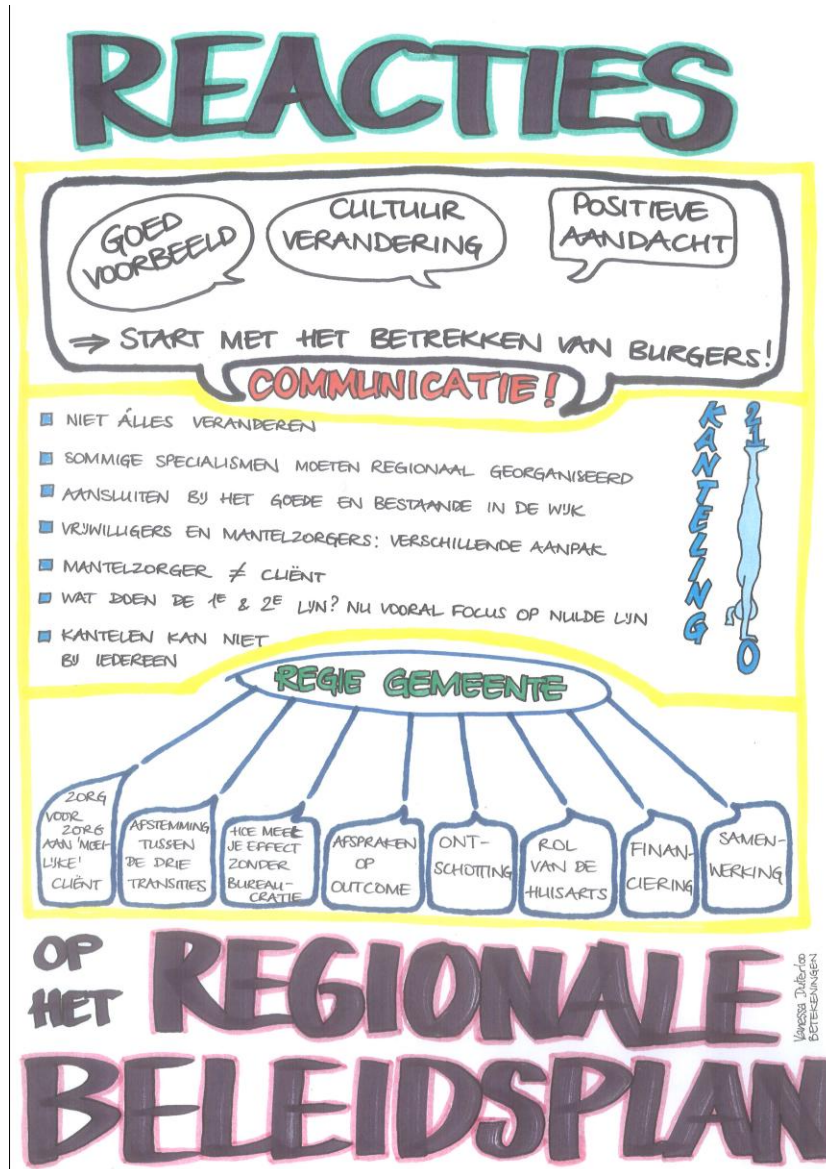 REACTIES
GOED
VOORBEELD
CULTUUR
VERANDERING
POSITIEVE
AANDACHT
⇒ START MET HET BETREKKEN VAN BURGERS!
COMMUNICATIE!
NIET ÁLLES VERANDEREN
SOMMIGE SPECIALISMEN MOETEN REGIONAAL GEORGANISEERD
AANSLUITEN BIJ HET GOEDE EN BESTAANDE IN DE WIJK
VRIJWILLIGERS EN MANTELZORGERS: VERSCHILLENDE AANPAK
MANTELZORGER ≠ CLIËNT
WAT DOEN DE 1E & 2E LIJN? NU VOORAL FOCUS OP NULDE LIJN
KANTELEN KAN NIET
BIJ IEDEREEN
KANTELING
2
1
0
REGIE GEMEENTE
ZORG
VOOR
ZORG
AAN 'MOEI-
LIJKE'
CLIËNT
AFSTEMMING
TUSSEN
DE DRIE
TRANSITIES
HOE MEET
JE EFFECT
ZONDER
BUREAU-
CRATIE
AFSPRAKEN
OP
OUTCOME
ONT-
SCHOTTING
ROL
VAN DE
HUISARTS
FINAN-
CIERING
SAMEN-
WERKING
OP
HET
REGIONALE
BELEIDSPLAN
Vanessa Duterloo
BETEKENINGEN